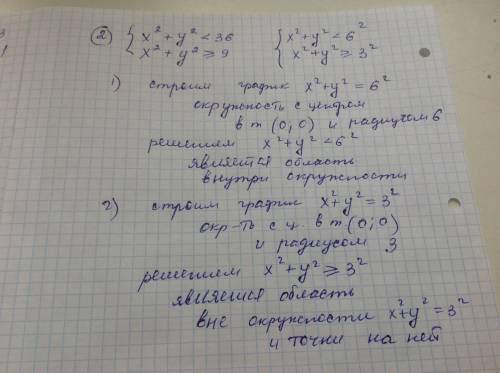 ② { x² + y² < 36 { x² + y² < 6²
x² + y² ≥ 9 x² + y² ≥ 3²
1) строим график x² + y² = 6²
окружность с центром
в т (0; 0) и радиусом 6
решением x² + y² < 6²
является область
внутри окружности
2) строим график x² + y² = 3²
окр-ть с ц. в т (0; 0)
и радиусом 3
решением x² + y² ≥ 3²
является область
вне окружности x² + y² = 3²
и точки на ней